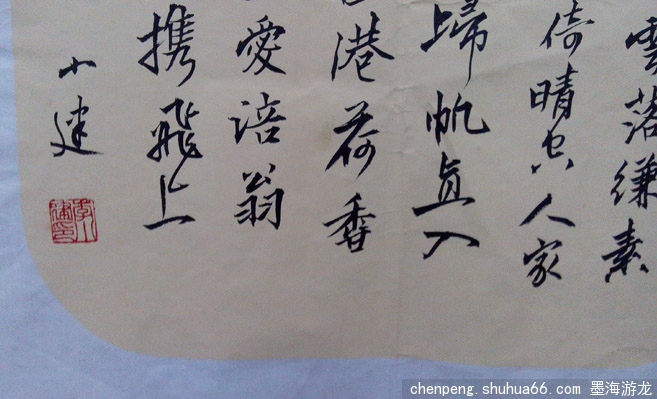 雲落縑素
倚晴空人家
歸帆直入
港荷香
愛涪翁
携飛上
小建
chenpeng.shuhua66.com 墨海游龙